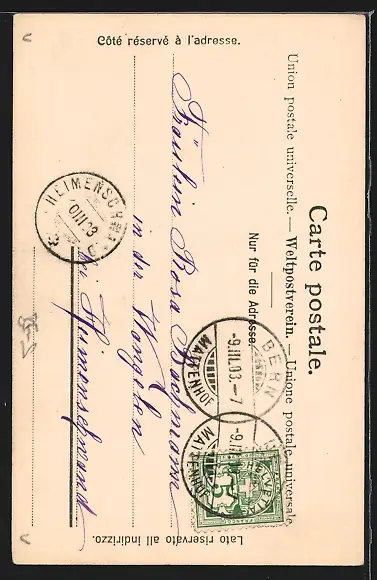 Carte postale.
Union postale universelle. — Weltpostverein. — Unione postale universale
Nur für die Adresse.
Côté réservé à l'adresse.
Lato riservato all indirizzo.
Fräulein Rosa Bachmann
in der
bei Heimenschwand
BERN
-9.III.03.-7
MATTENHOF
BERN
-9.III
MATTENHOF
HELVETIA
5
FRANCO
HEIMENSCHWAND
10.III.03